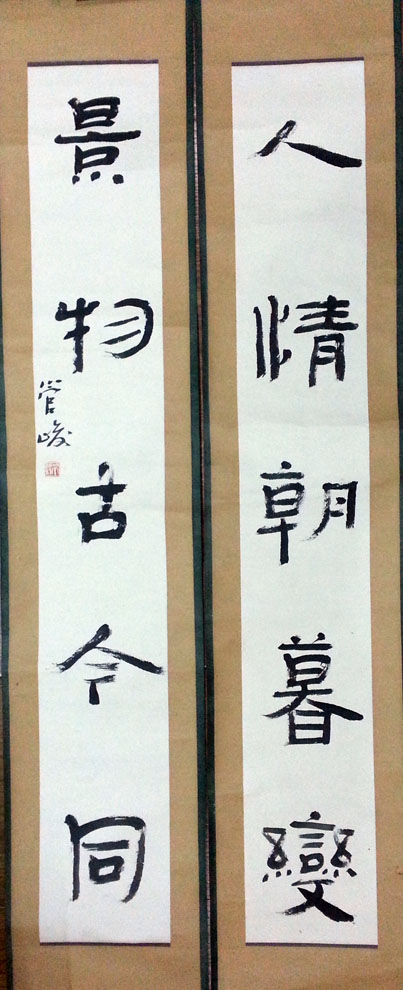 人情朝暮變
景物古今同
管峻